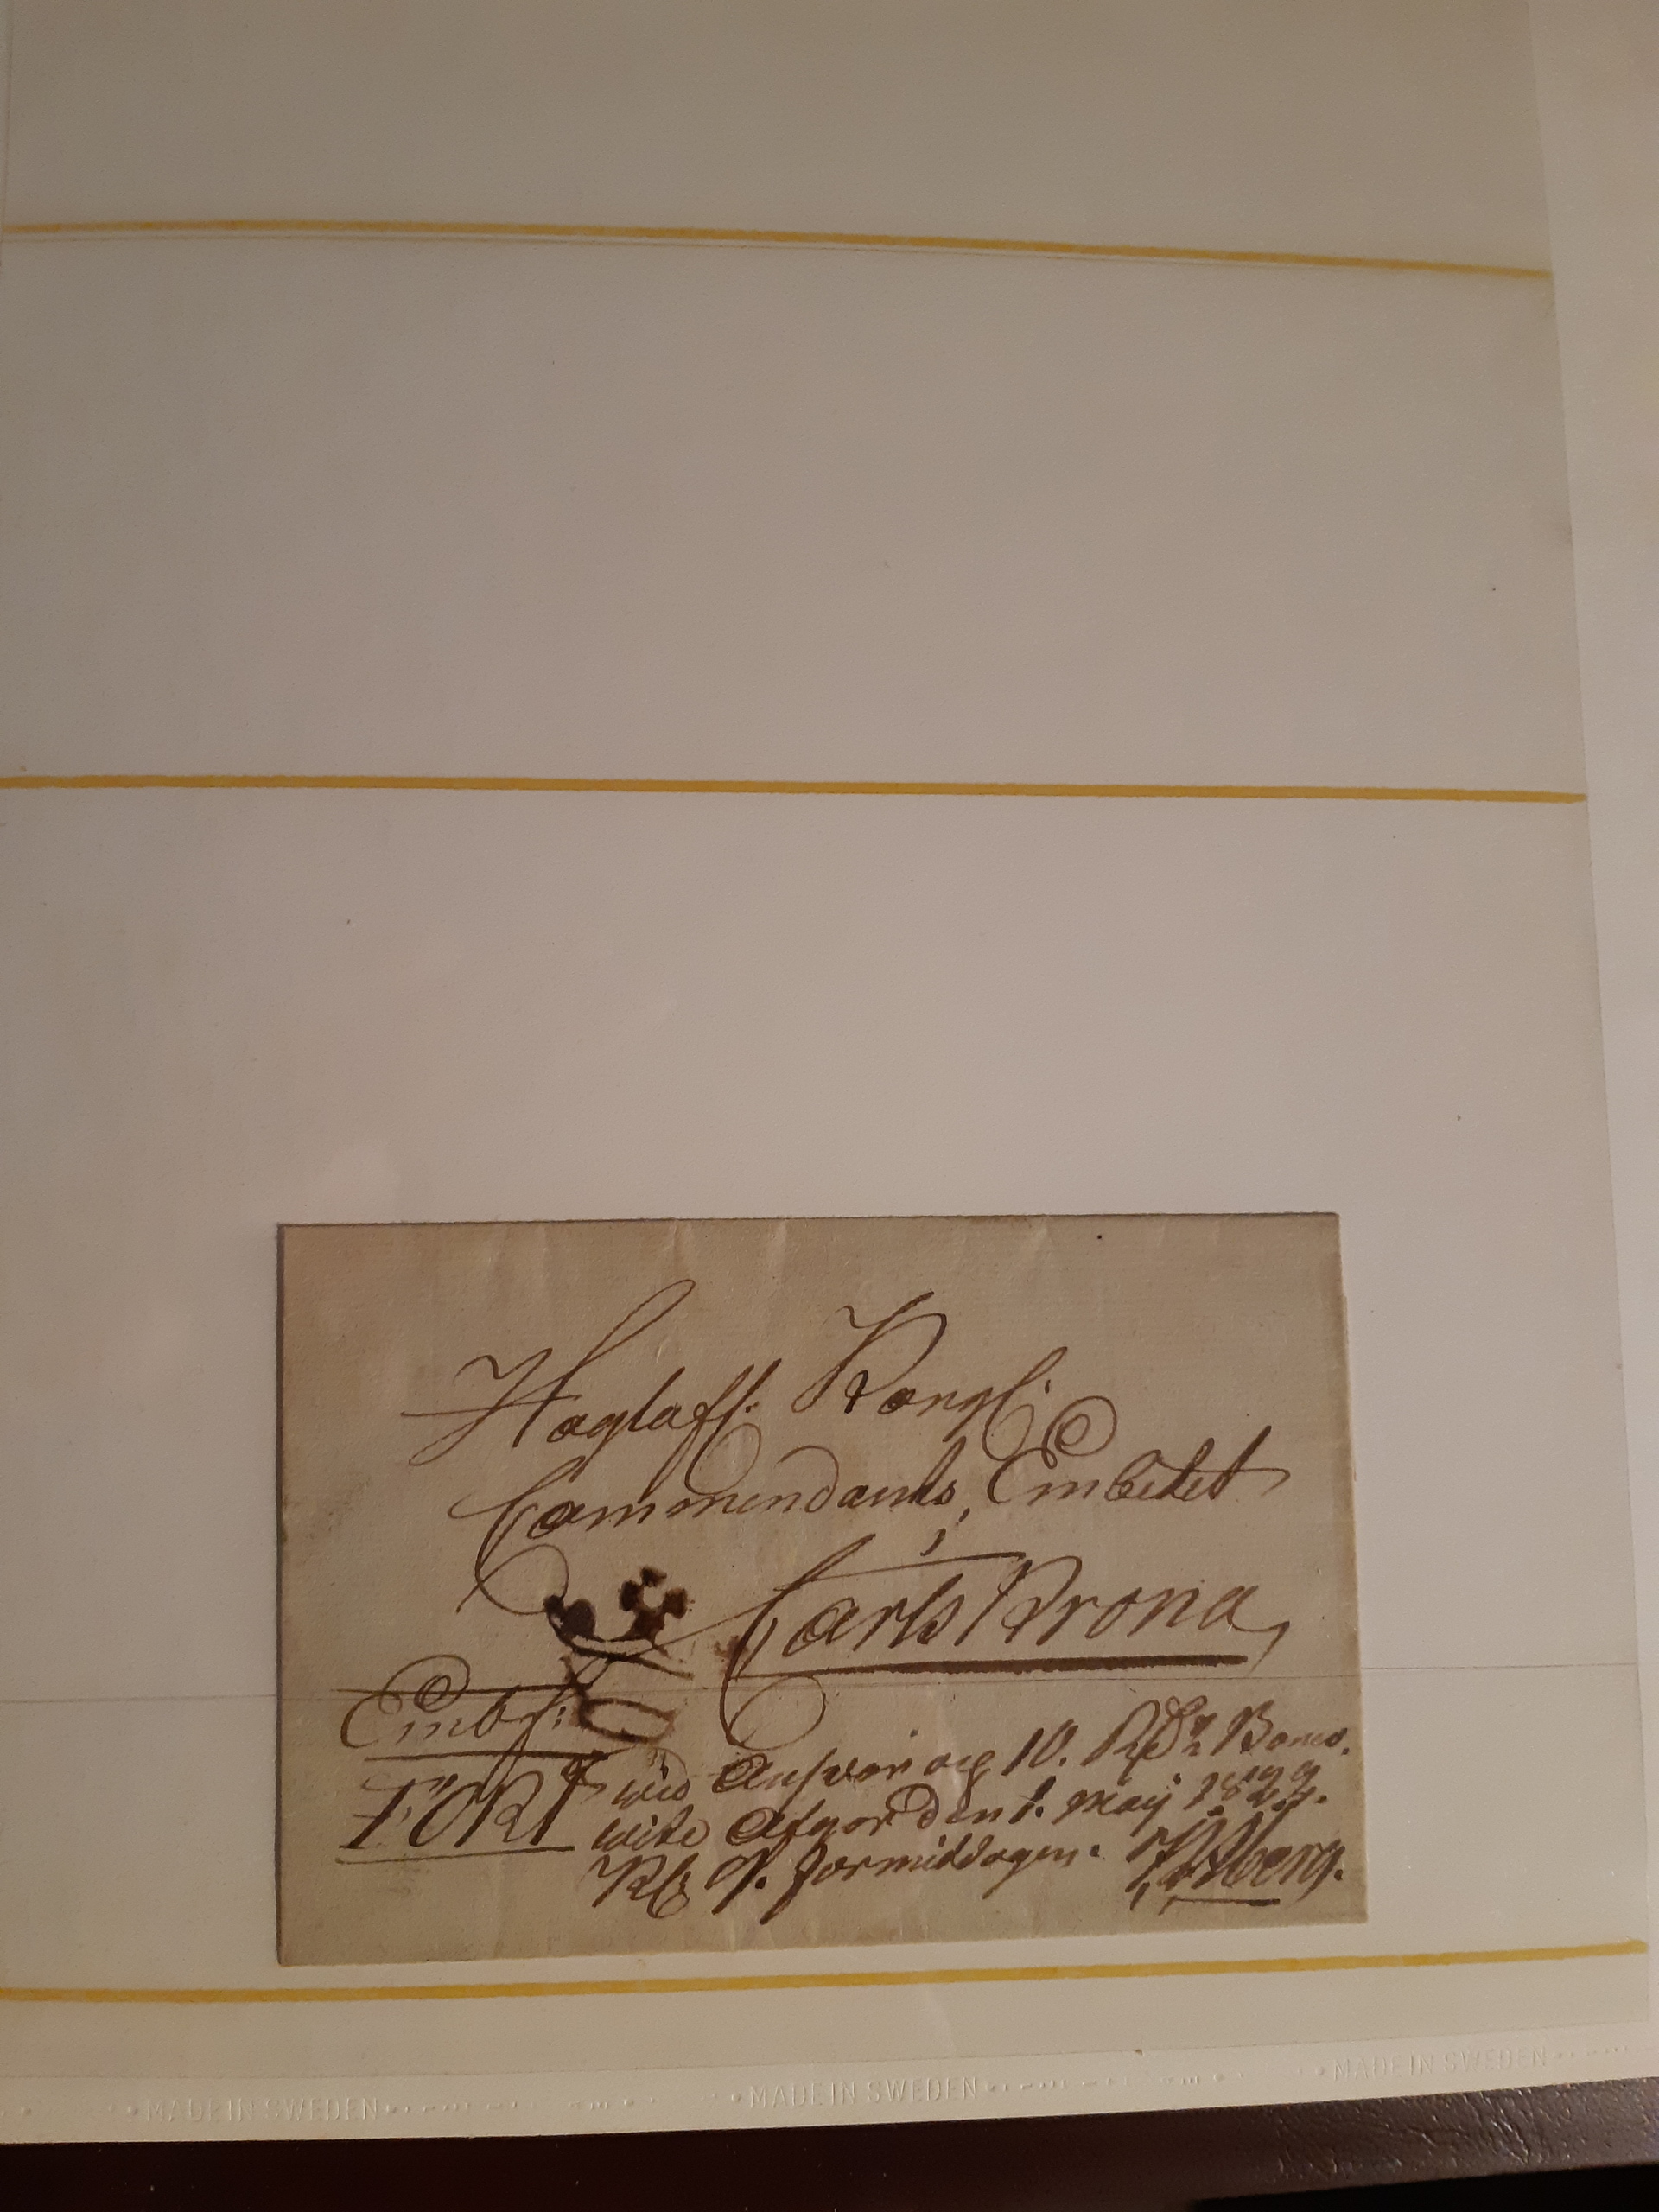 Höglofl. Kongl.
Commendants Embetet
i
CarlsKrona
Embf:
FORT wid Answar aeg 10. RDr Banco.
wite Afgår den 1. Maij 1829.
Kl. 9. formiddagen.
MADE IN SWEDEN
MADE IN SWEDEN
MADE IN SWEDEN